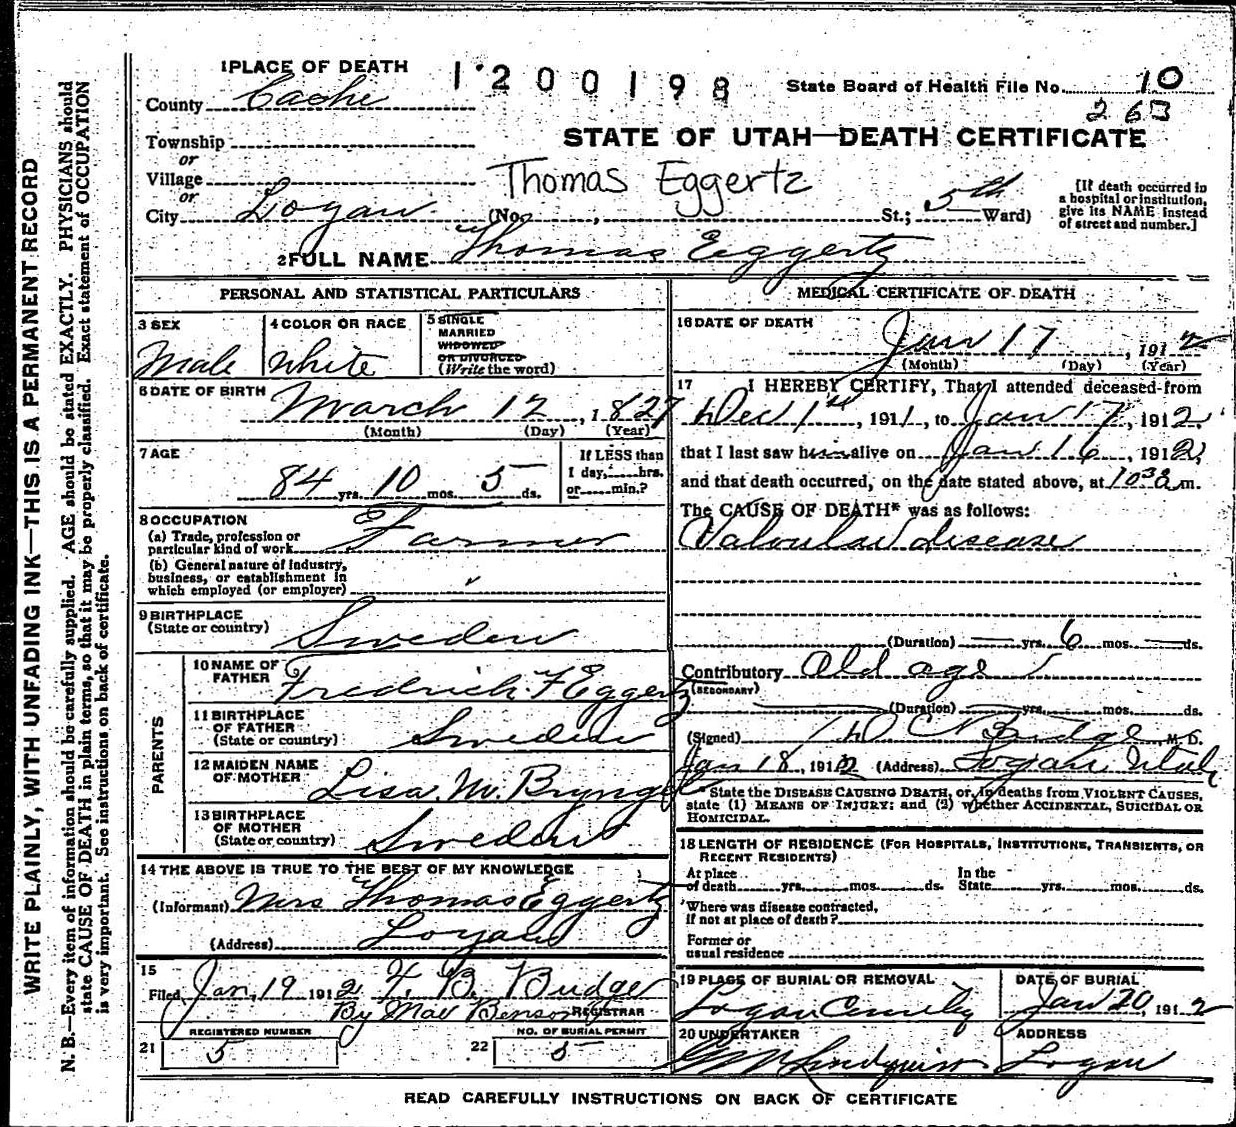 1 PLACE OF DEATH
1·200198
State Board of Health File No. 10
263
County Cache
STATE OF UTAH—DEATH CERTIFICATE
Township
or
Village
or
City Logan
Thomas Eggertz
(No. , St.; 5th Ward)
[If death occurred in
a hospital or institution,
give its NAME instead
of street and number.]
2 FULL NAME Thomas Eggertz
PERSONAL AND STATISTICAL PARTICULARS
3 SEX
Male
4 COLOR OR RACE
White
5 SINGLE
MARRIED
WIDOWED
OR DIVORCED
(Write the word)
6 DATE OF BIRTH
March 12, 1827
(Month) (Day) (Year)
7 AGE
84 yrs. 10 mos. 5 ds.
If LESS than
1 day, hrs.
or min.?
8 OCCUPATION
(a) Trade, profession or
particular kind of work Farmer
(b) General nature of industry,
business, or establishment in
which employed (or employer)
9 BIRTHPLACE
(State or country) Sweden
PARENTS
10 NAME OF
FATHER Fredrich F Eggertz
11 BIRTHPLACE
OF FATHER
(State or country) Sweden
12 MAIDEN NAME
OF MOTHER Lisa M. Bryngel
13 BIRTHPLACE
OF MOTHER
(State or country) Sweden
14 THE ABOVE IS TRUE TO THE BEST OF MY KNOWLEDGE
(Informant) Mrs Thomas Eggertz
(Address) Logan
15
Filed Jan. 19 1912. F. B. Budge
By Mae Benson REGISTRAR
REGISTERED NUMBER
21 5
NO. OF BURIAL PERMIT
22 5
MEDICAL CERTIFICATE OF DEATH
16 DATE OF DEATH
Jan 17, 1912
(Month) (Day) (Year)
17 I HEREBY CERTIFY, That I attended deceased from
Dec 1st, 1911, to Jan 17, 1912,
that I last saw him alive on Jan 16, 1912,
and that death occurred, on the date stated above, at 10 30 a m.
The CAUSE OF DEATH* was as follows:
Valvular disease
(Duration) yrs. 6 mos. ds.
Contributory Old age
(SECONDARY)
(Duration) yrs. mos. ds.
(Signed) D C Budge, M. D.
Jan 18, 1912 (Address) Logan Utah
*State the DISEASE CAUSING DEATH, or, in deaths from VIOLENT CAUSES,
state (1) MEANS OF INJURY; and (2) whether ACCIDENTAL, SUICIDAL OR
HOMICIDAL.
18 LENGTH OF RESIDENCE (FOR HOSPITALS, INSTITUTIONS, TRANSIENTS, OR
RECENT RESIDENTS)
At place
of death yrs. mos. ds.
In the
State yrs. mos. ds.
Where was disease contracted,
if not at place of death?
Former or
usual residence
19 PLACE OF BURIAL OR REMOVAL
Logan Cemetery
DATE OF BURIAL
Jan 20, 1912
20 UNDERTAKER
Lindquist
ADDRESS
Logan
READ CAREFULLY INSTRUCTIONS ON BACK OF CERTIFICATE
WRITE PLAINLY, WITH UNFADING INK—THIS IS A PERMANENT RECORD
N. B.—Every item of information should be carefully supplied. AGE should be stated EXACTLY. PHYSICIANS should
state CAUSE OF DEATH in plain terms, so that it may be properly classified. Exact statement of OCCUPATION
is very important. See instructions on back of certificate.